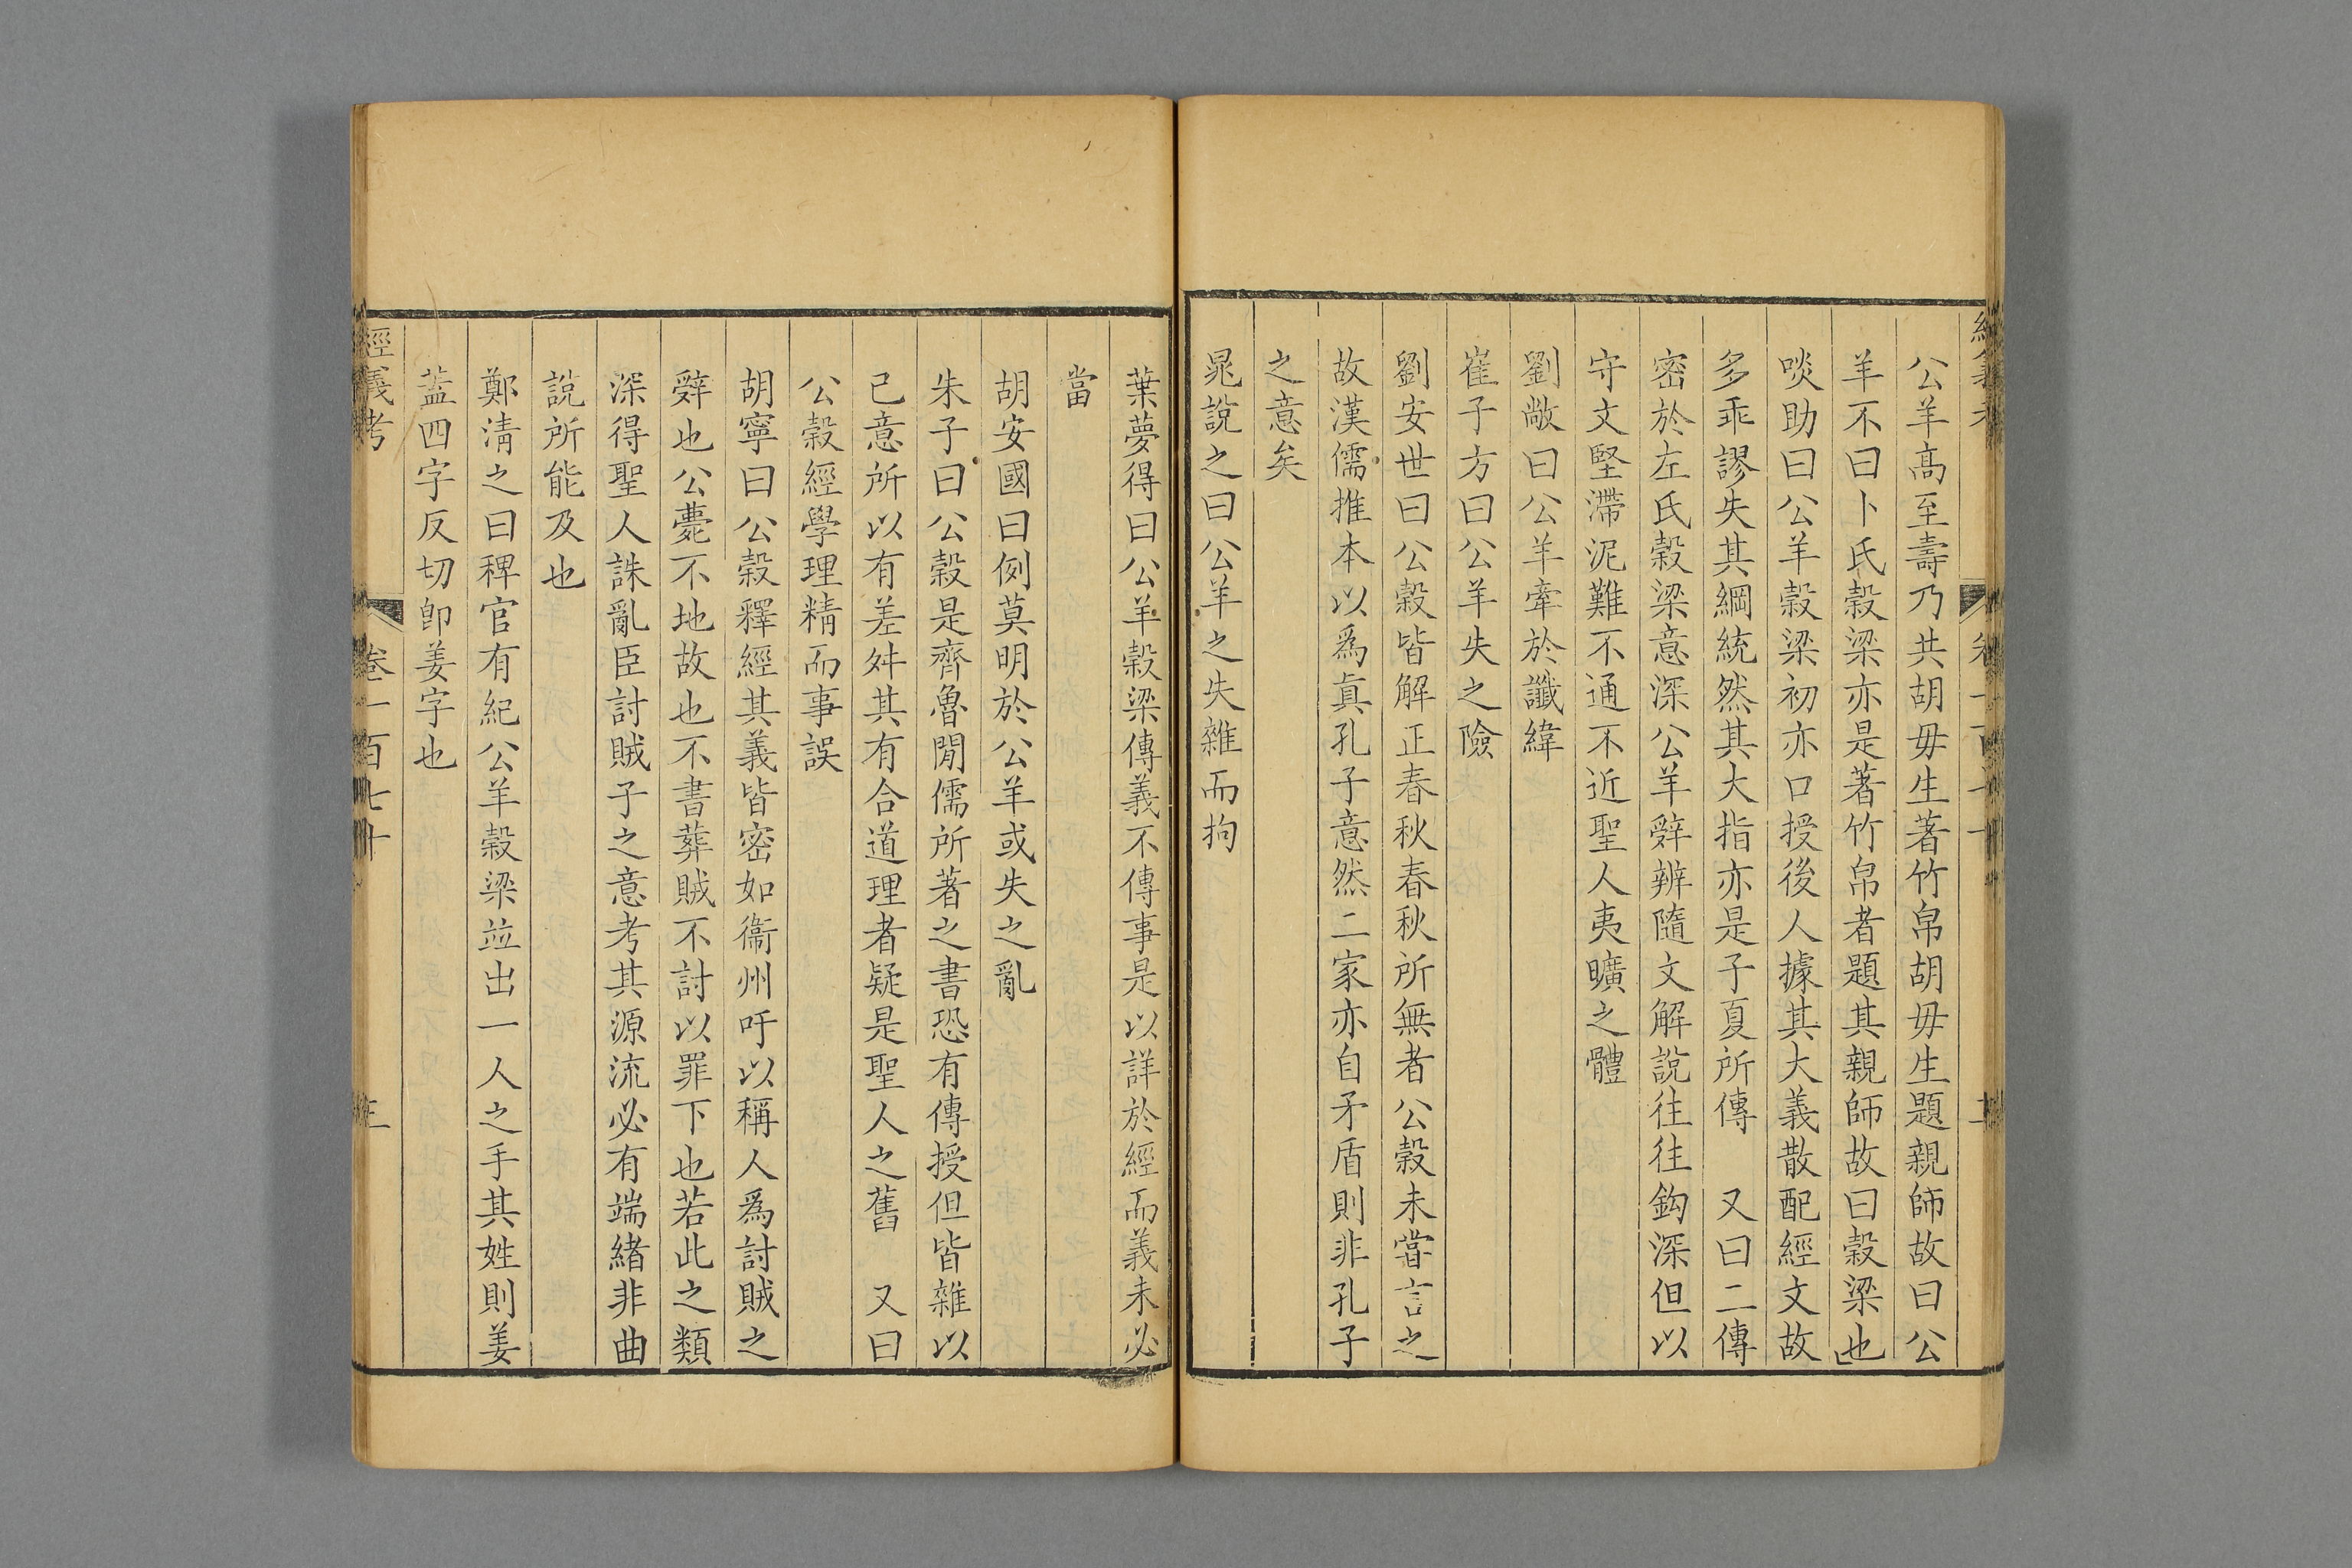 公羊髙至壽乃共胡毋生著竹帛胡毋生題親師故曰公
羊不曰卜氏榖梁亦是著竹帛者題其親師故曰榖梁也
啖助曰公羊榖梁初亦口授後人據其大義散配經文故
多乖謬失其綱統然其大指亦是子夏所傳　又曰二傳
密於左氏榖梁意深公羊辭辨隨文解說往往鈎深但以
守文堅滯泥難不通不近聖人夷曠之體
劉敞曰公羊牽於讖緯
崔子方曰公羊失之險
劉安世曰公榖皆解正春秋春秋所無者公榖未嘗言之
故漢儒推本以爲眞孔子意然二家亦自矛盾則非孔子
之意矣
晁說之曰公羊之失雜而拘
葉夢得曰公羊榖梁傳義不傳事是以詳於經而義未必
當
胡安國曰例莫明於公羊或失之亂
朱子曰公榖是齊魯閒儒所著之書恐有傳授但皆雜以
己意所以有差舛其有合道理者疑是聖人之舊　又曰
公榖經學理精而事誤
胡寧曰公榖釋經其義皆密如衞州吁以稱人爲討賊之
辭也公薨不地故也不書葬賊不討以罪下也若此之類
深得聖人誅亂臣討賊子之意考其源流必有端緒非曲
說所能及也
鄭淸之曰稗官有紀公羊榖梁竝出一人之手其姓則姜
葢四字反切卽姜字也
經義考　卷一百七十　三